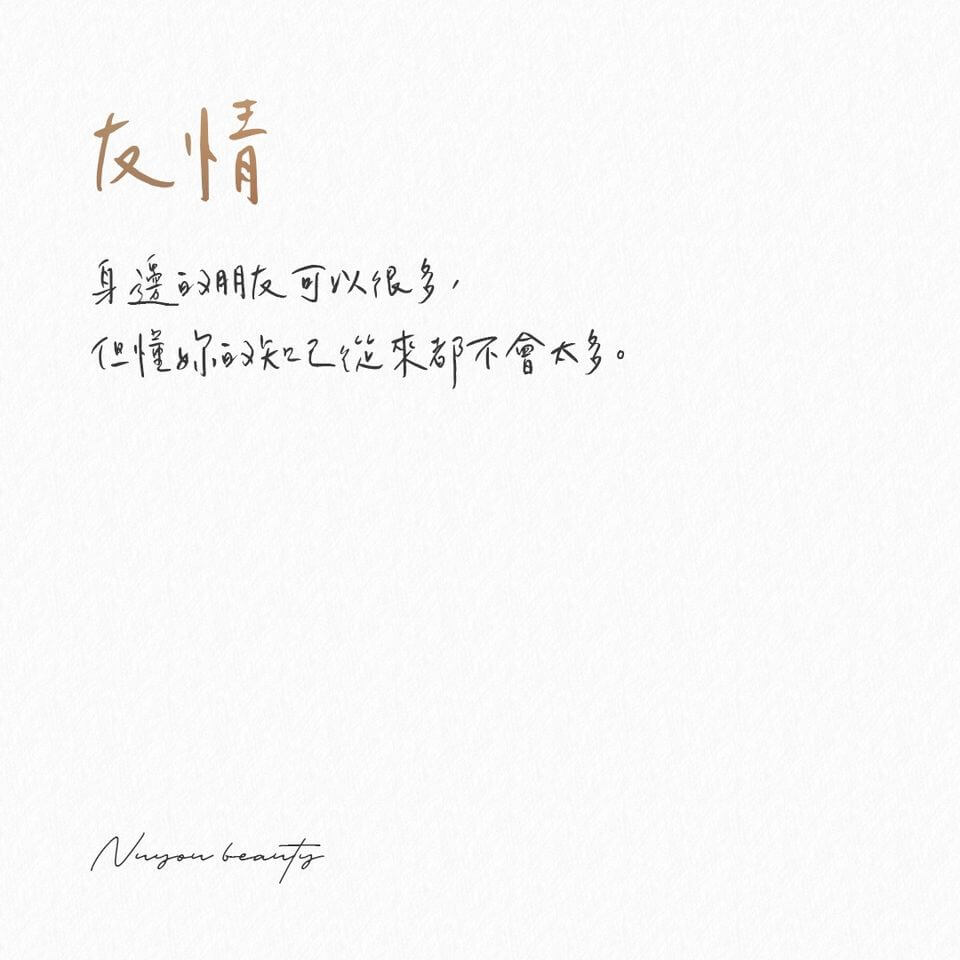 友情
身邊的朋友可以很多，
但懂妳的知己從來都不會太多。
Nuyou beauty